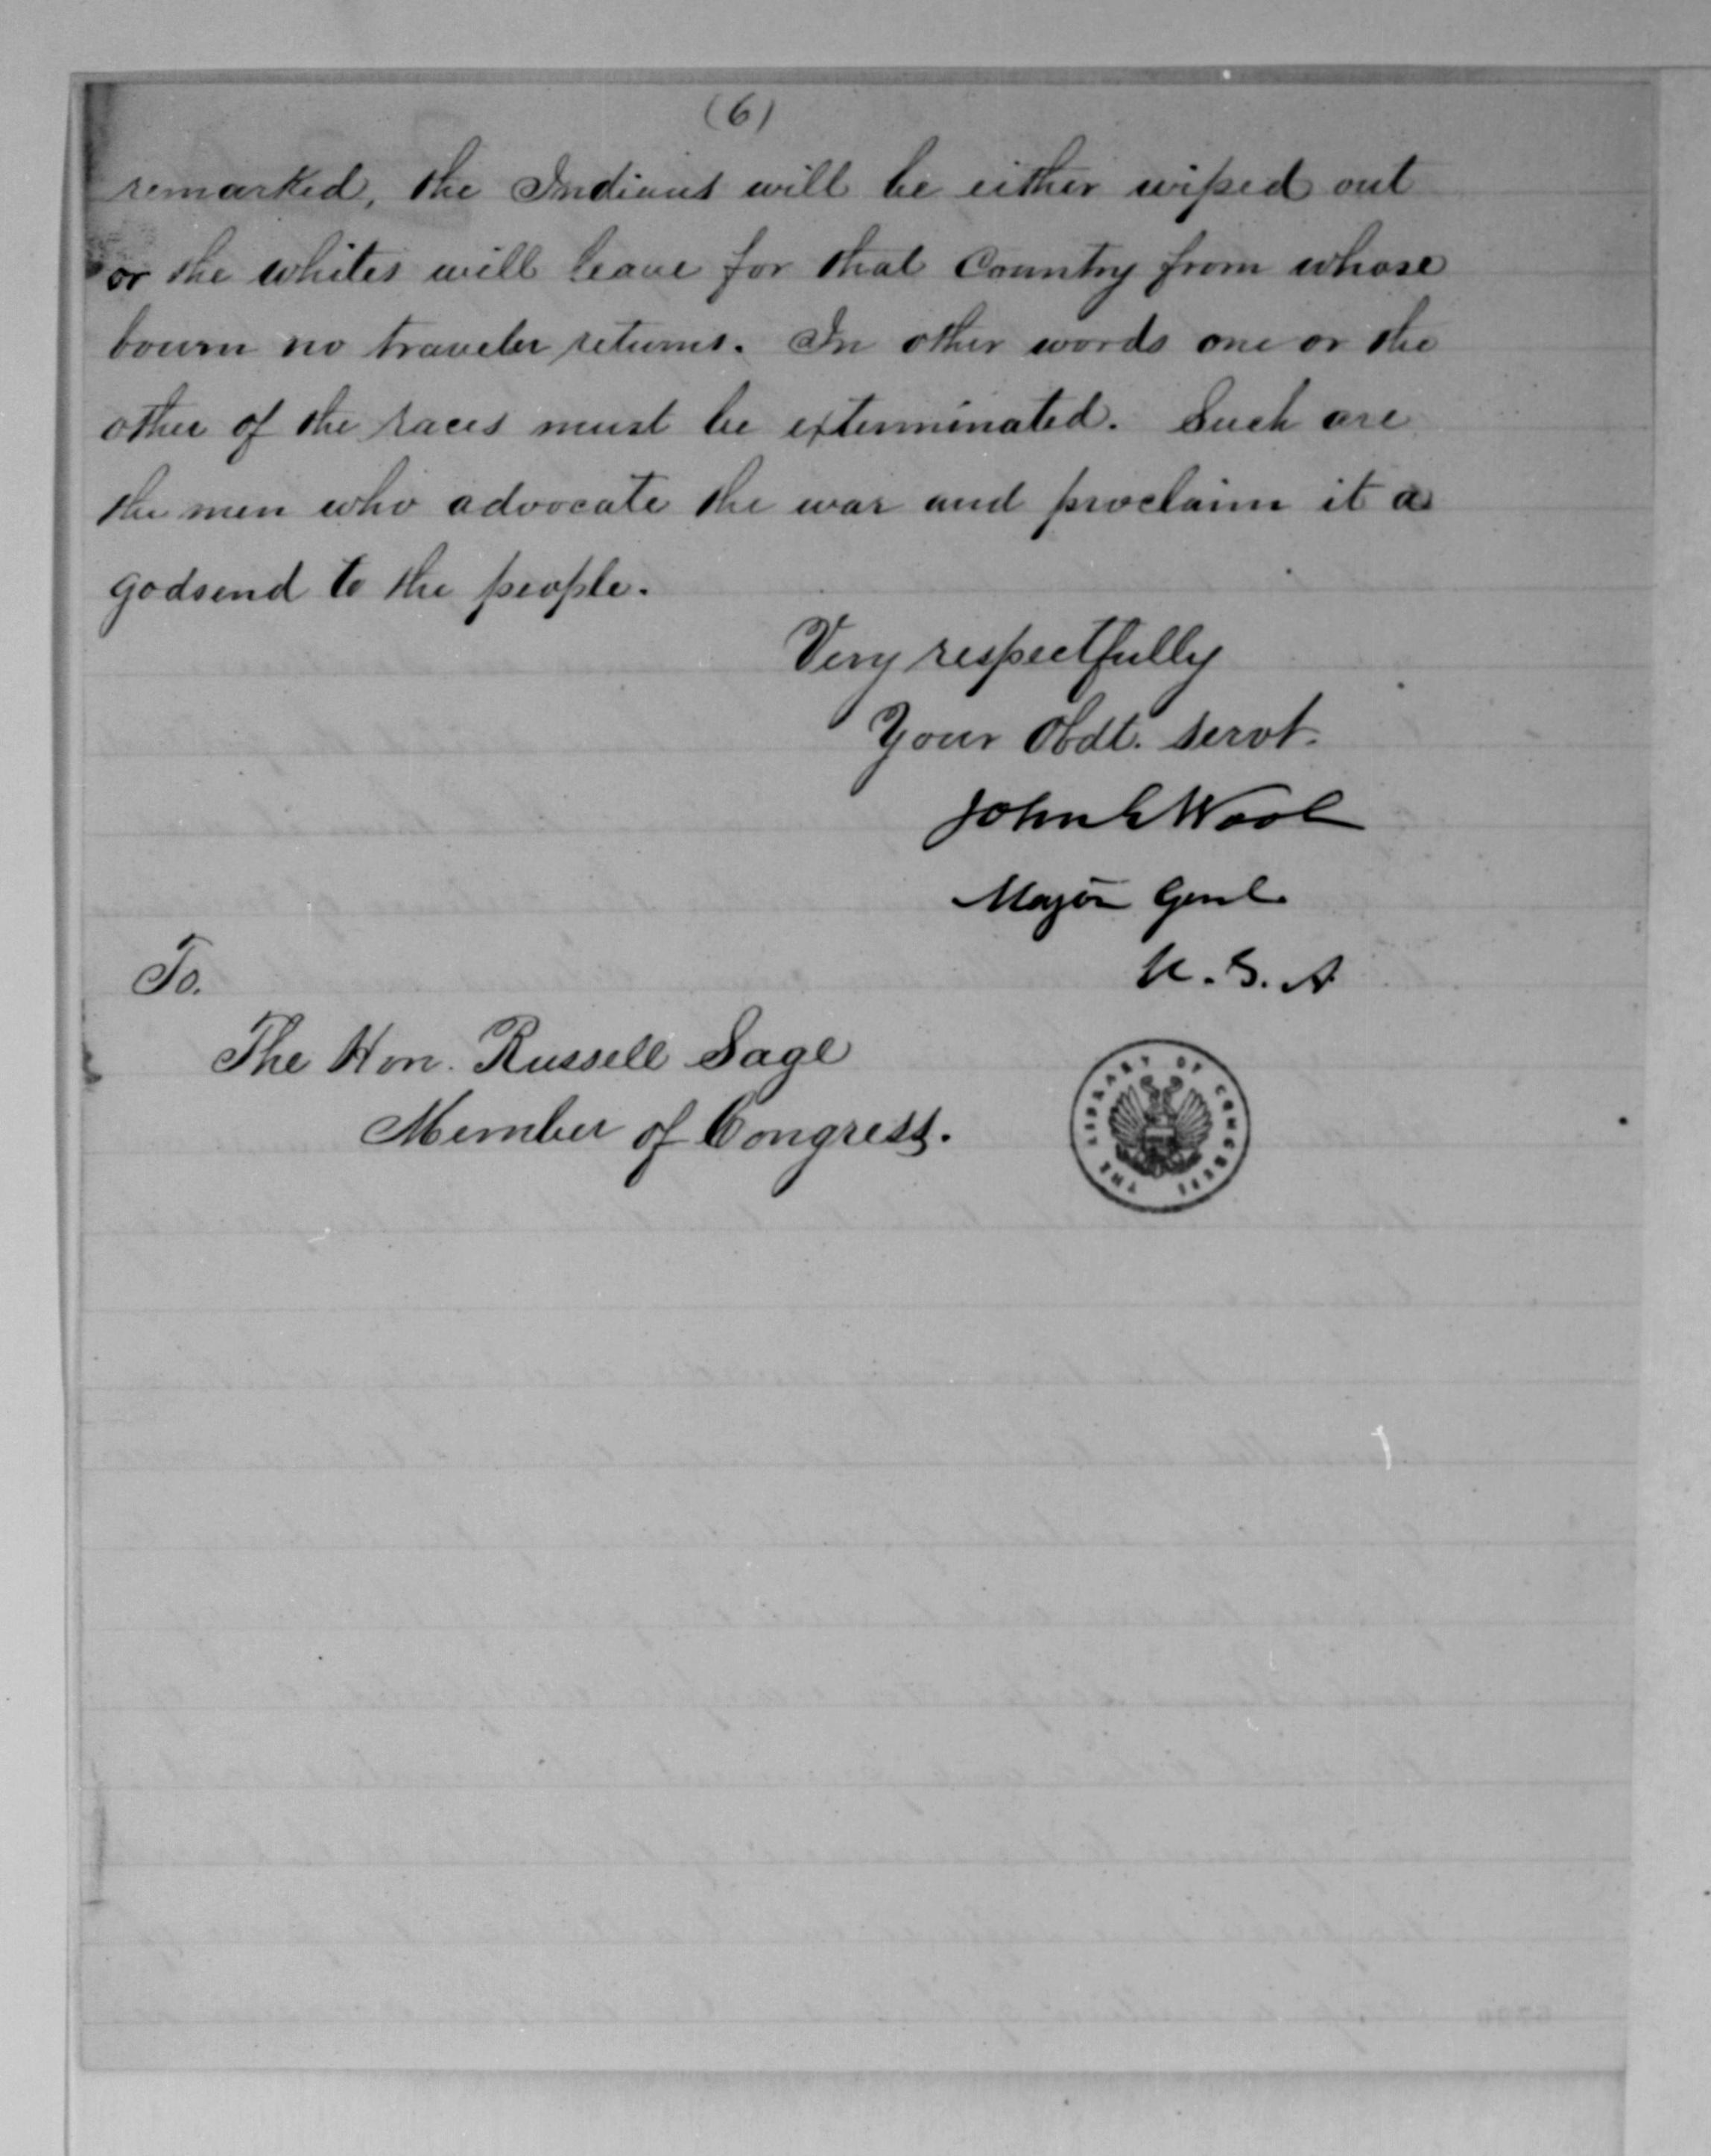 (6)
remarked, the Indians will be either wiped out
or the whites will leave for that Country from whose
bourn no traveler returns. In other words one or the
other of the races must be exterminated. Such are
the men who advocate the war and proclaim it a
godsend to the people.
Very respectfully
Your Obdt. Servt.
John E Wool
Major Genl
U. S. A
To.
The Hon. Russell Sage
Member of Congress.
THE LIBRARY OF CONGRESS